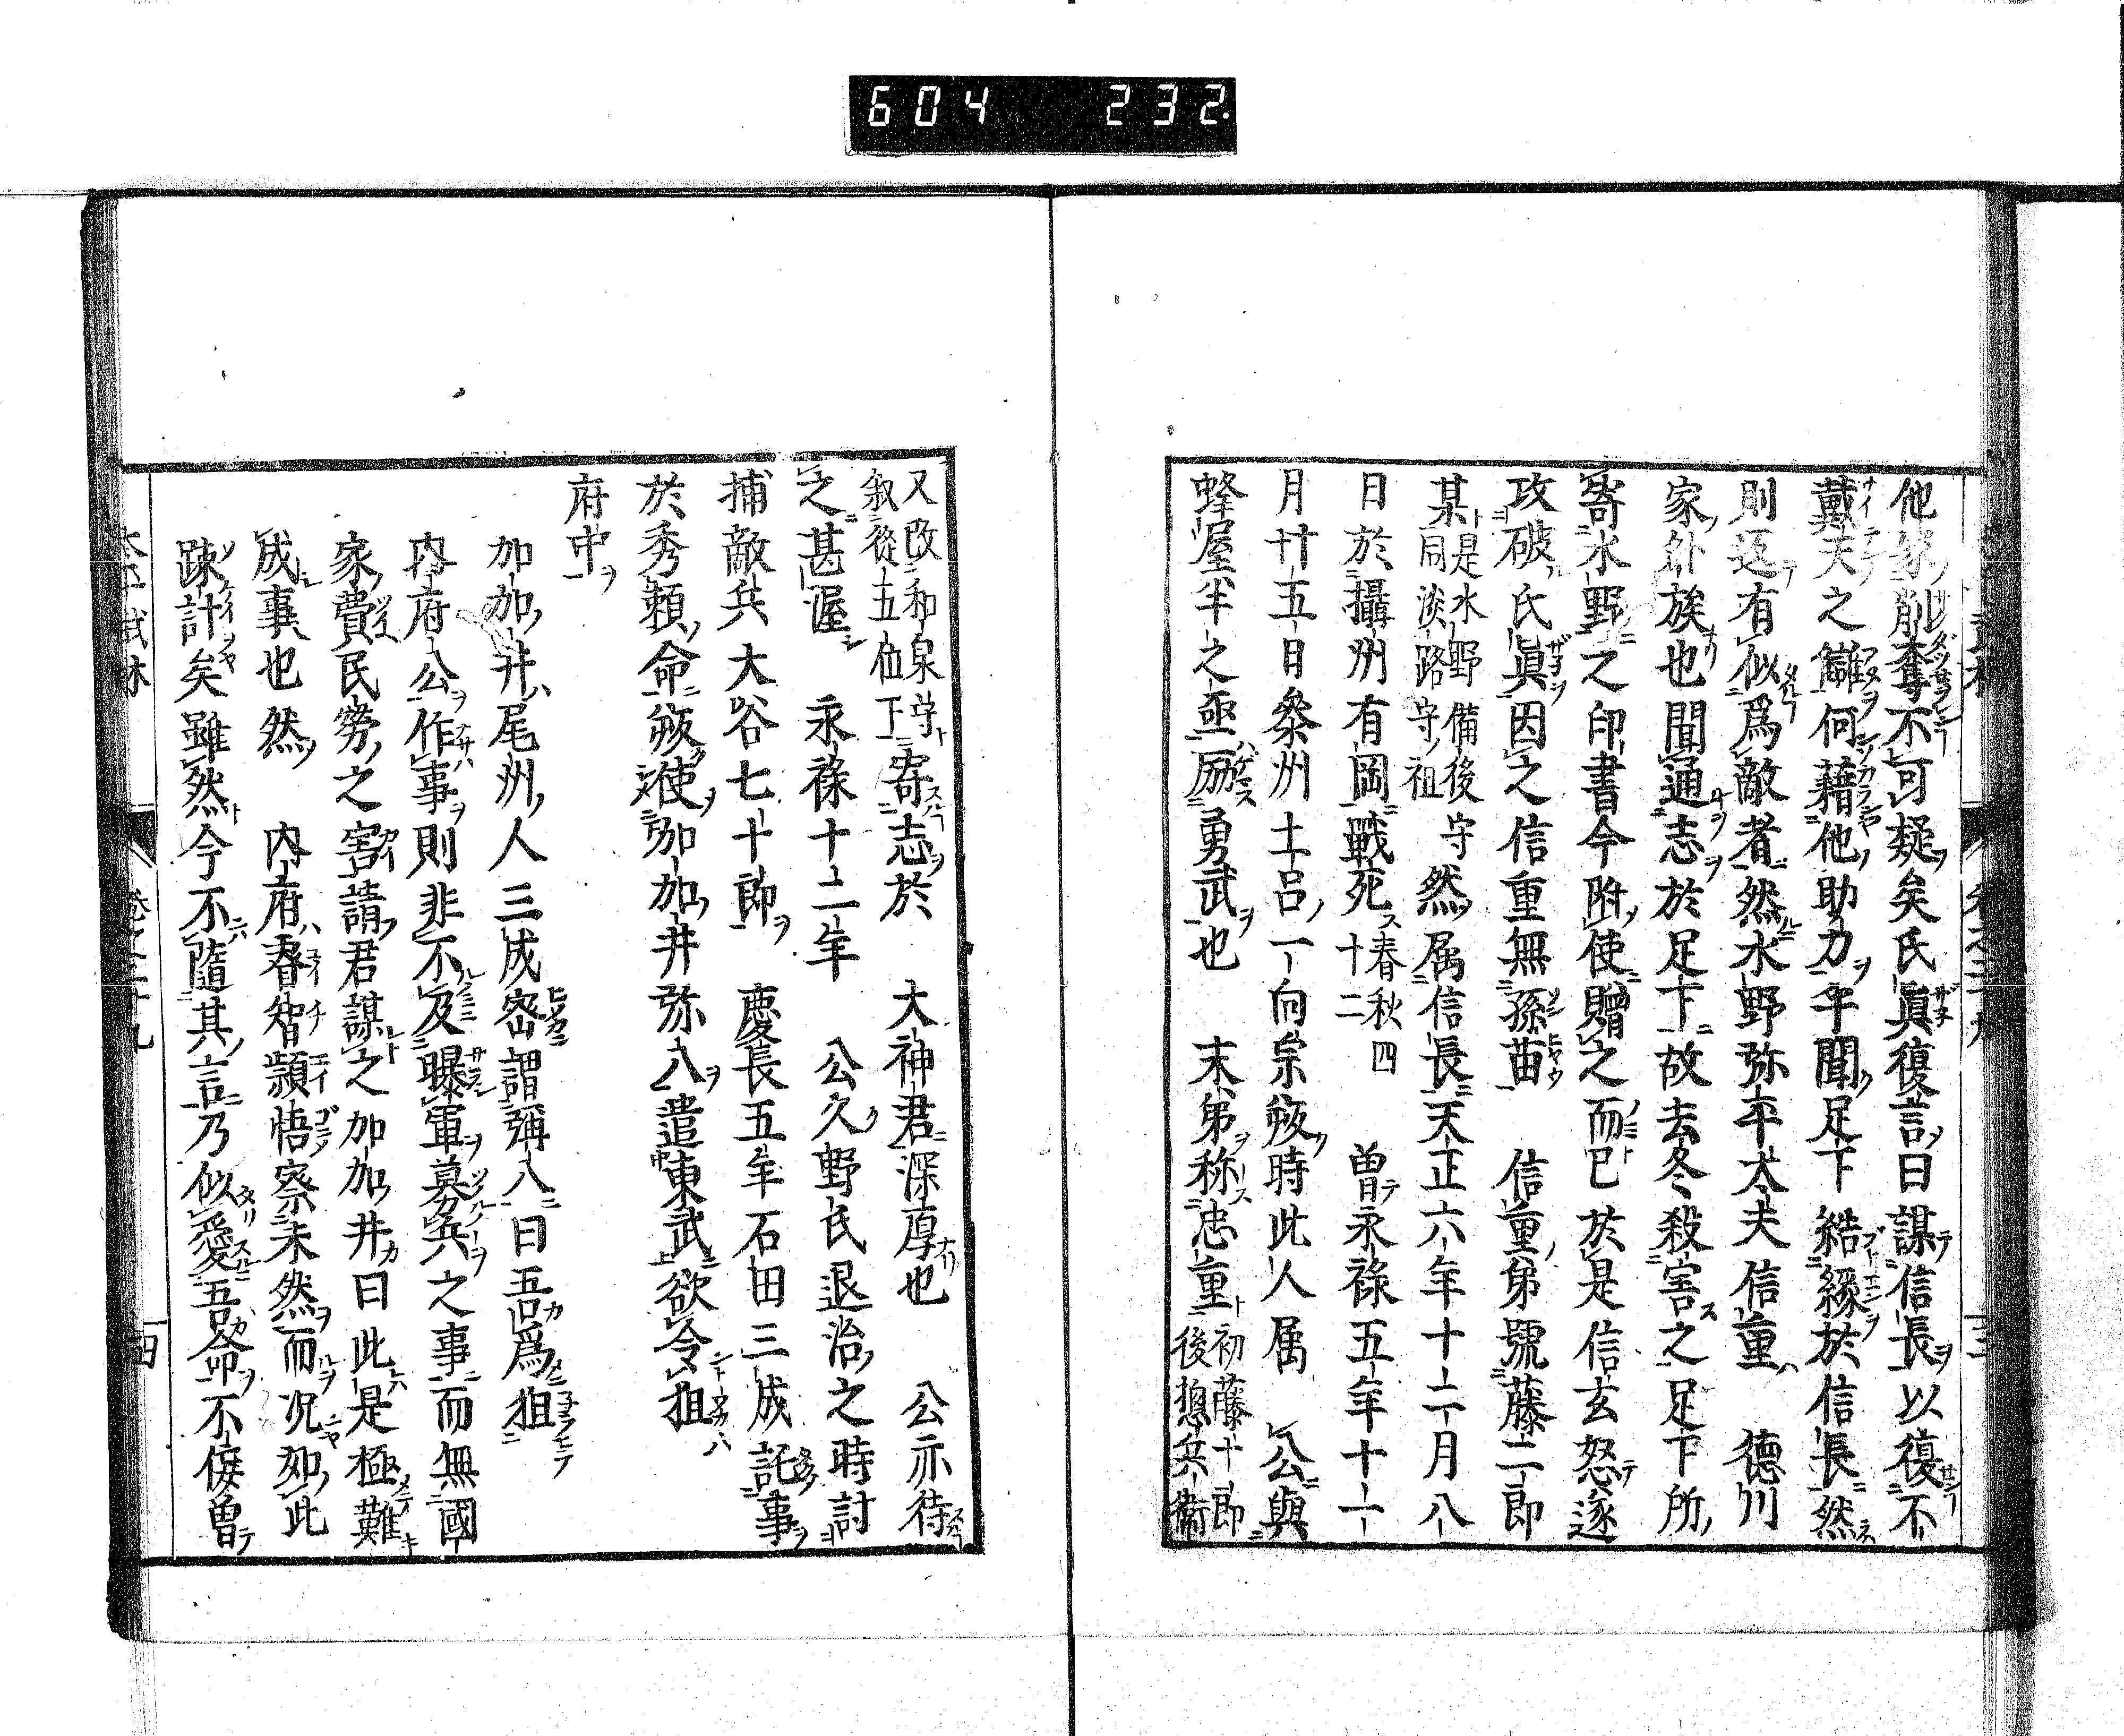 604 232
他家削奪不可疑矣氏眞復言曰謀信長以復不
戴天之讎何藉他助力乎聞足下結緣於信長然
則返有似爲敵者然水野弥平太夫信重德川
家外族也聞通志於足下故去冬殺害之足下所
寄水野之印書今附使贈之而已於是信玄怒遂
攻破氏眞因之信重無孫苗信重弟號藤二郎
某是水野備後守
同淡路守祖然属信長天正六年十二月八
日於攝州有岡戰死春秋四
十二曽永祿五年十一
月廿五日叅州土呂一向宗叛時此人属公與
蜂屋半之亟励勇武也末弟称忠重初藤十郎
後揔兵衛
又改和泉守
叙從五位下寄志於大神君深厚也公亦待
之甚渥永祿十二年公久野氏退治之時討
捕敵兵大谷七十郎慶長五年石田三成託事
於秀賴命叛使加加井弥八遣東武欲令狙
府中
加加井尾州人三成密謂彌八曰吾爲狙
内府公作事則非不及曝軍募兵之事而無國
家費民勞之害請君謀之加加井曰此是極難
成事也然内府睿智頴悟察未然而况如此
踈計矣雖然今不隨其言乃似愛吾命不侫曽